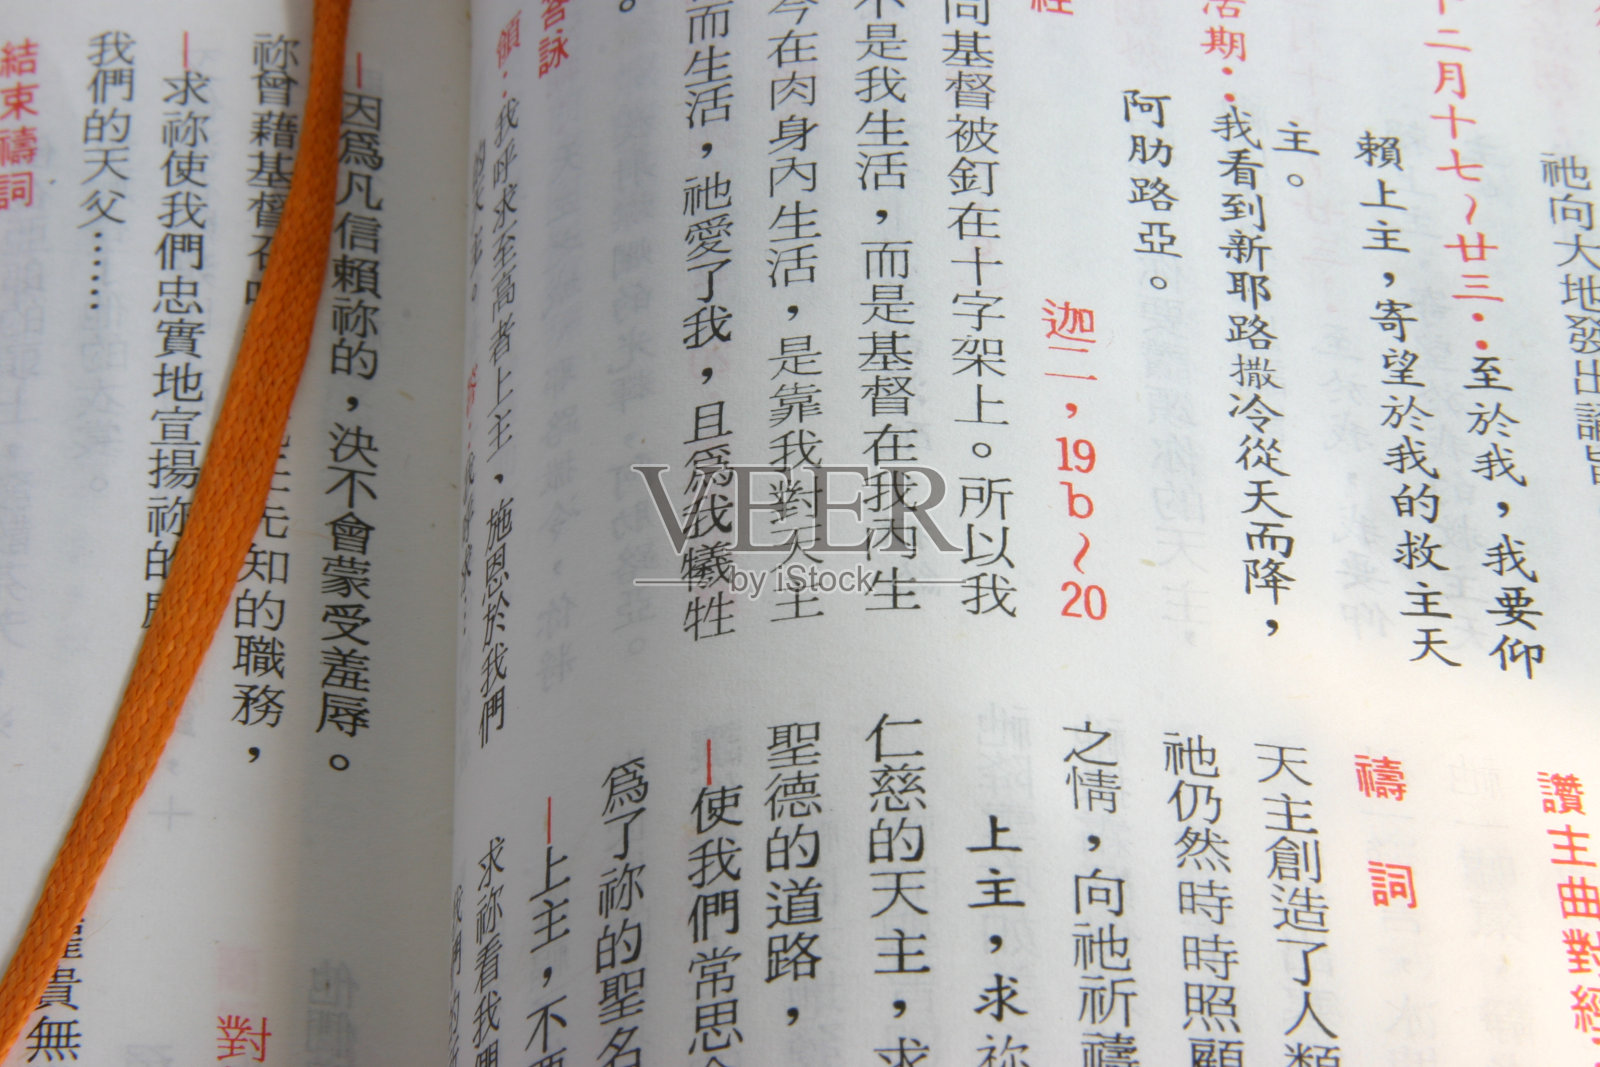 祂向大地發出諭旨
十二月十七～廿三：至於我，我要仰
賴上主，寄望於我的救主天
主。
活期：我看到新耶路撒冷從天而降，
阿肋路亞。
迦二，19b～20
同基督被釘在十字架上。所以我
不是我生活，而是基督在我內生
今在肉身內生活，是靠我對天主
而生活，祂愛了我，且為我犧牲
。
答詠
領：我呼求至高者上主，施恩於我們
的天主。
讚主曲對經
禱詞
天主創造了人類
祂仍然時時照顧
之情，向祂祈禱
上主，求祢
仁慈的天主，求
聖德的道路，
—使我們常思念
為了祢的聖名
—上主，不要
求祢看我們
—因為凡信賴祢的，決不會蒙受羞辱。
祢曾藉基督召
先知的職務，
—求祢使我們忠實地宣揚祢的
我們的天父……
結束禱詞
對
貴無
VEER
by iStock